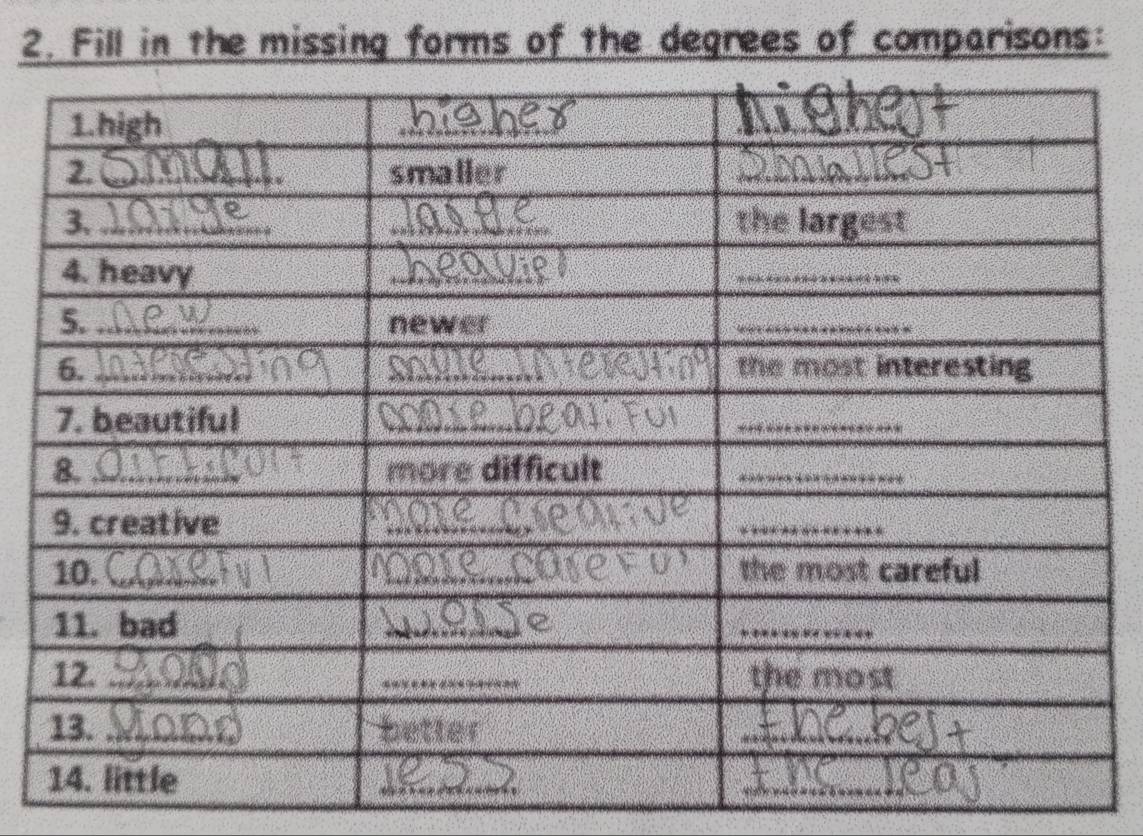 2. Fill in the missing forms of the degrees of comparisons:
1.high higher highest
2. small smaller smallest
3. large large the largest
4. heavy heavier ..................
5. new newer ..................
6. Interesting more Interesting the most interesting
7. beautiful more beatiful ..................
8. difficult more difficult ..................
9. creative more creative ...............
10. careful more careful the most careful
11. bad worse ..............
12. good ............... the most
13. good better the best
14. little less the leas